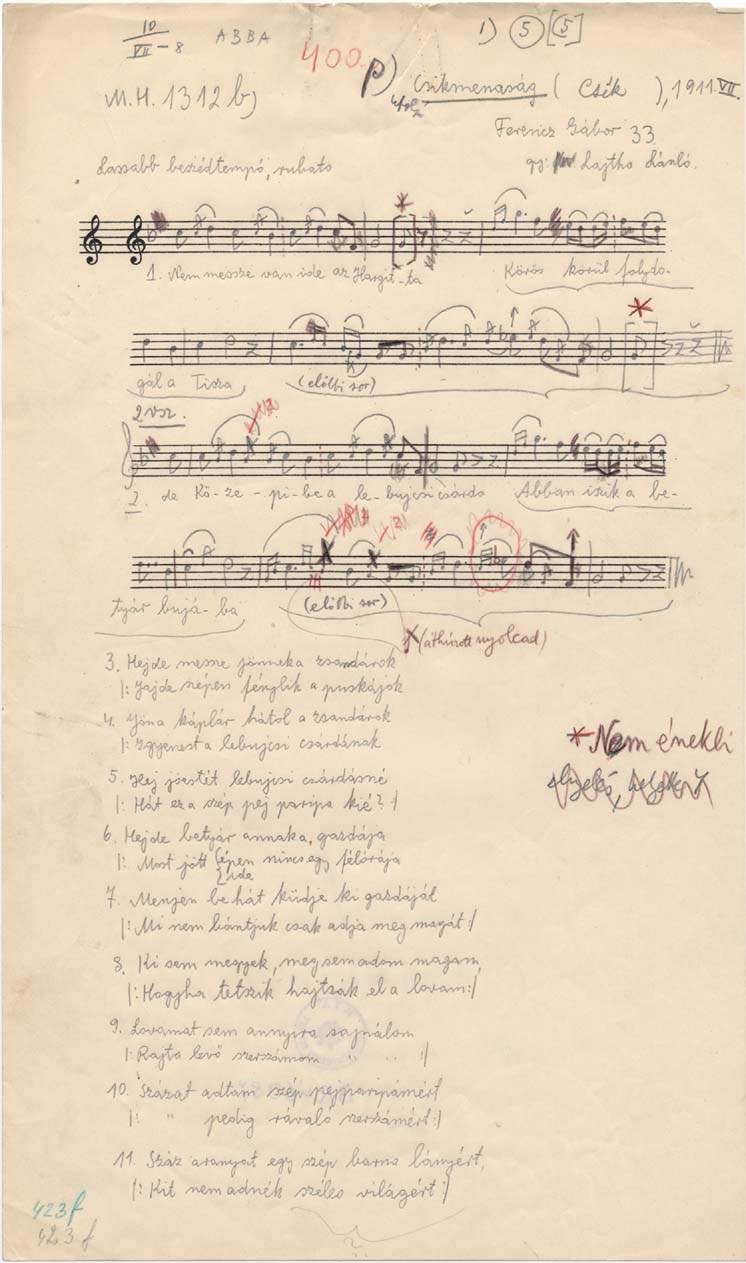 10
VII - 8 ABBA 400. p) 1) 5 [5]
M.H. 1312 b) Csikmenaság ( Csík ), 1911. VII.
Ferencz Gábor 33
Lassabb beszédtempó, rubato gy. Lajtha László.
1. Nem messze van ide az Hargit-ta Körös körül folydo-
gál a Tisza (előbbi sor)
2 vsz.
2. de Kö-ze-pi-be a le-bujcsi csárda Abban iszik a be-
tyár bujá-ba (előbbi sor)
(áthúzott nyolcad)
3. Hejde messze jönneka zsandárok
|: Jajde szépen fénylik a puskájok
4. Jöna káplár hátol a zsandárok
|: Igyenest a lebujcsi csárdának
* Nem énekli
5. Hej jóestét lebujcsi csárdásné
|: Hát ez a szép pej paripa kié? :|
6. Hejde betyár annaka, gazdája
|: Most jött épen nincs egy félórája
ide
7. Menjen be hát küdje ki gazdáját
|: Mi nem bántjuk csak adja meg magát :|
8. Ki sem megyek, meg sem adom magam,
|: Hogyha tetszik hajtsák el a lovam :|
9. Lovamat sem annyira sajnálom
|: Rajta levő szerszámom " " :|
10. Százat adtam szép pejparipámért
|: " pedig rávaló szerszámért :|
11. Száz aranyat egy szép barna lányért,
|: Kit nem adnék széles világért :|
423 f
423 f
?